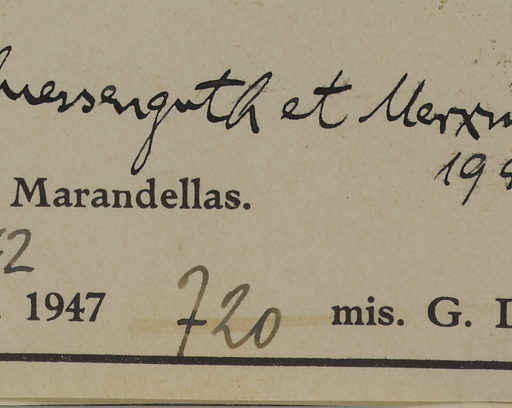 uessenguth et Merxm
19
Marandellas.
2
1947 720 mis. G.